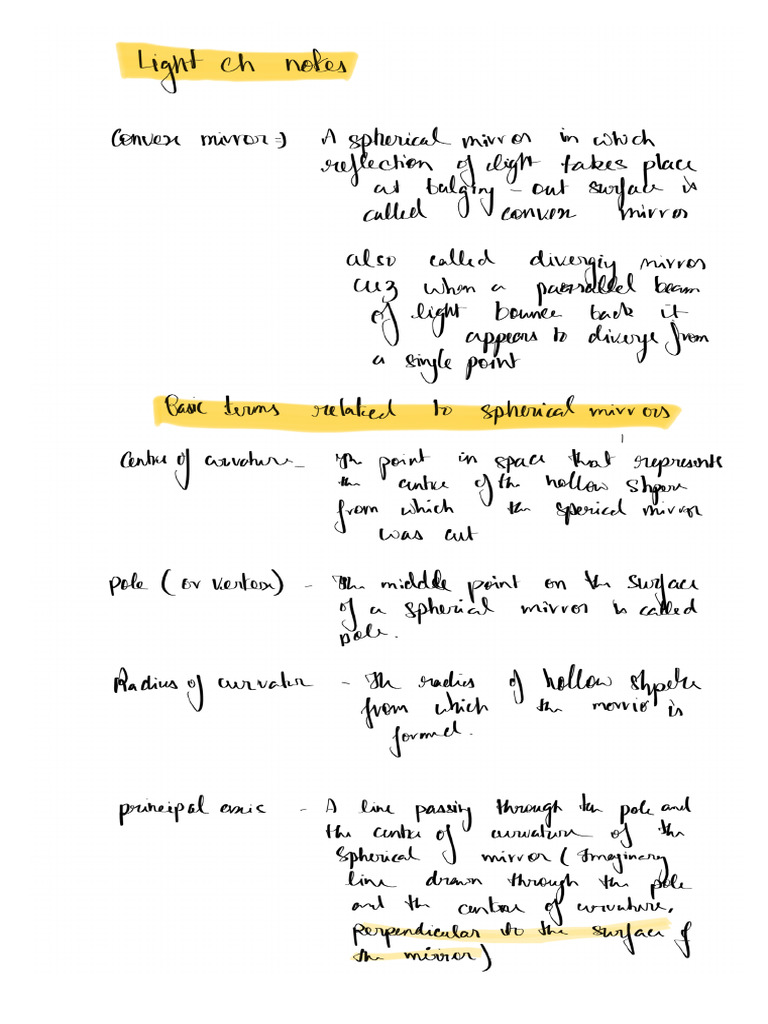 Light ch notes
Convex mirror ⇒ A spherical mirror in which
reflection of light takes place
at bulging - out surface is
called convex mirror
also called diverging mirror
cuz when a parrallel beam
of light bounce back it
appears to diverge from
a single point
Basic terms related to spherical mirrors
Centre of curvature - The point in space that represents
the centre of the hollow Shpere
from which the sperical mirror
was cut
pole (or vertex) - The middle point on the surface
of a spherical mirror is called
pole.
Radius of curvatur - The radius of hollow shpere
from which the morrior is
formed.
principal axic - A line passing through the pole and
the centre of curvature of the
spherical mirror (Imaginary
line drawn through the pole
and the centre of curvature,
perpendicular to the surface of
the mirror)